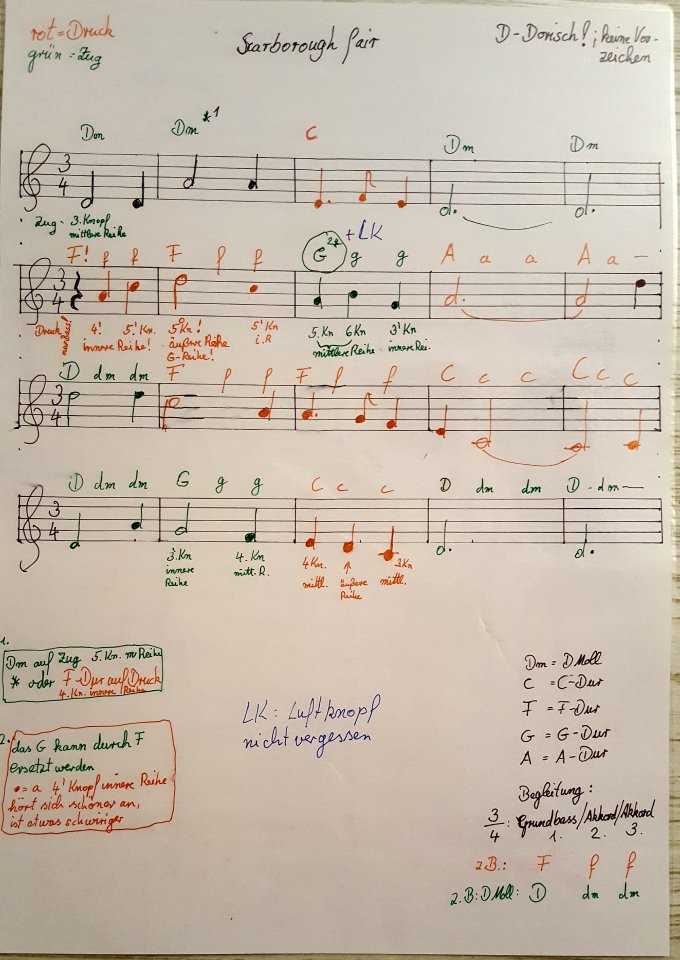 rot = Druck
grün = Zug
Scarborough fair
D-Dorisch! ; keine Vor-
zeichen
Dm Dm *1 C Dm Dm
3 4
Zug - 3. Knopf
mittlere Reihe
+LK
F! f f F f f G 2* g g A a a A a —
3 4
Druck! nur Bass! 4! 5! Kn. 5. Kn! 5! Kn 5. Kn 6Kn 3! Kn
innere Reihe! äußere Reihe i.R mittlere Reihe - innere Rei.
G-Reihe!
D dm dm F f f F f f C c c C c c
3 4
D dm dm G g g C c c D dm dm D - dm —
3 4
3. Kn 4. Kn 4 Kn. 3 Kn
innere mitt. R. mittl. äußere mittl.
Reihe Reihe
1.
Dm auf Zug 5. Kn. m Reihe
* oder F-Dur auf Druck
4. Kn. innere Reihe
2.
das G kann durch F
ersetzt werden
•= a 4' Knopf innere Reihe
hört sich schöner an,
ist etwas schwiriger
LK: Luftknopf
nicht vergessen
Dm = D Moll
C = C-Dur
F = F-Dur
G = G-Dur
A = A-Dur
Begleitung:
3/4 : Grundbass/Akkord/Akkord
1. 2. 3.
z.B.: F f f
z.B: D Moll: D dm dm